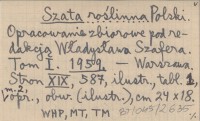 Szata roślinna Polski.
Opracowanie zbiorowe pod re-
dakcją Władysława Szafera.
Tom I. 1959 — Warszawa.
Stron XIX, 587, ilustr., tabl. 1,
m. 2,
opr., obw. (ilustr.), cm 24 x 18.
WHP, MT, TM